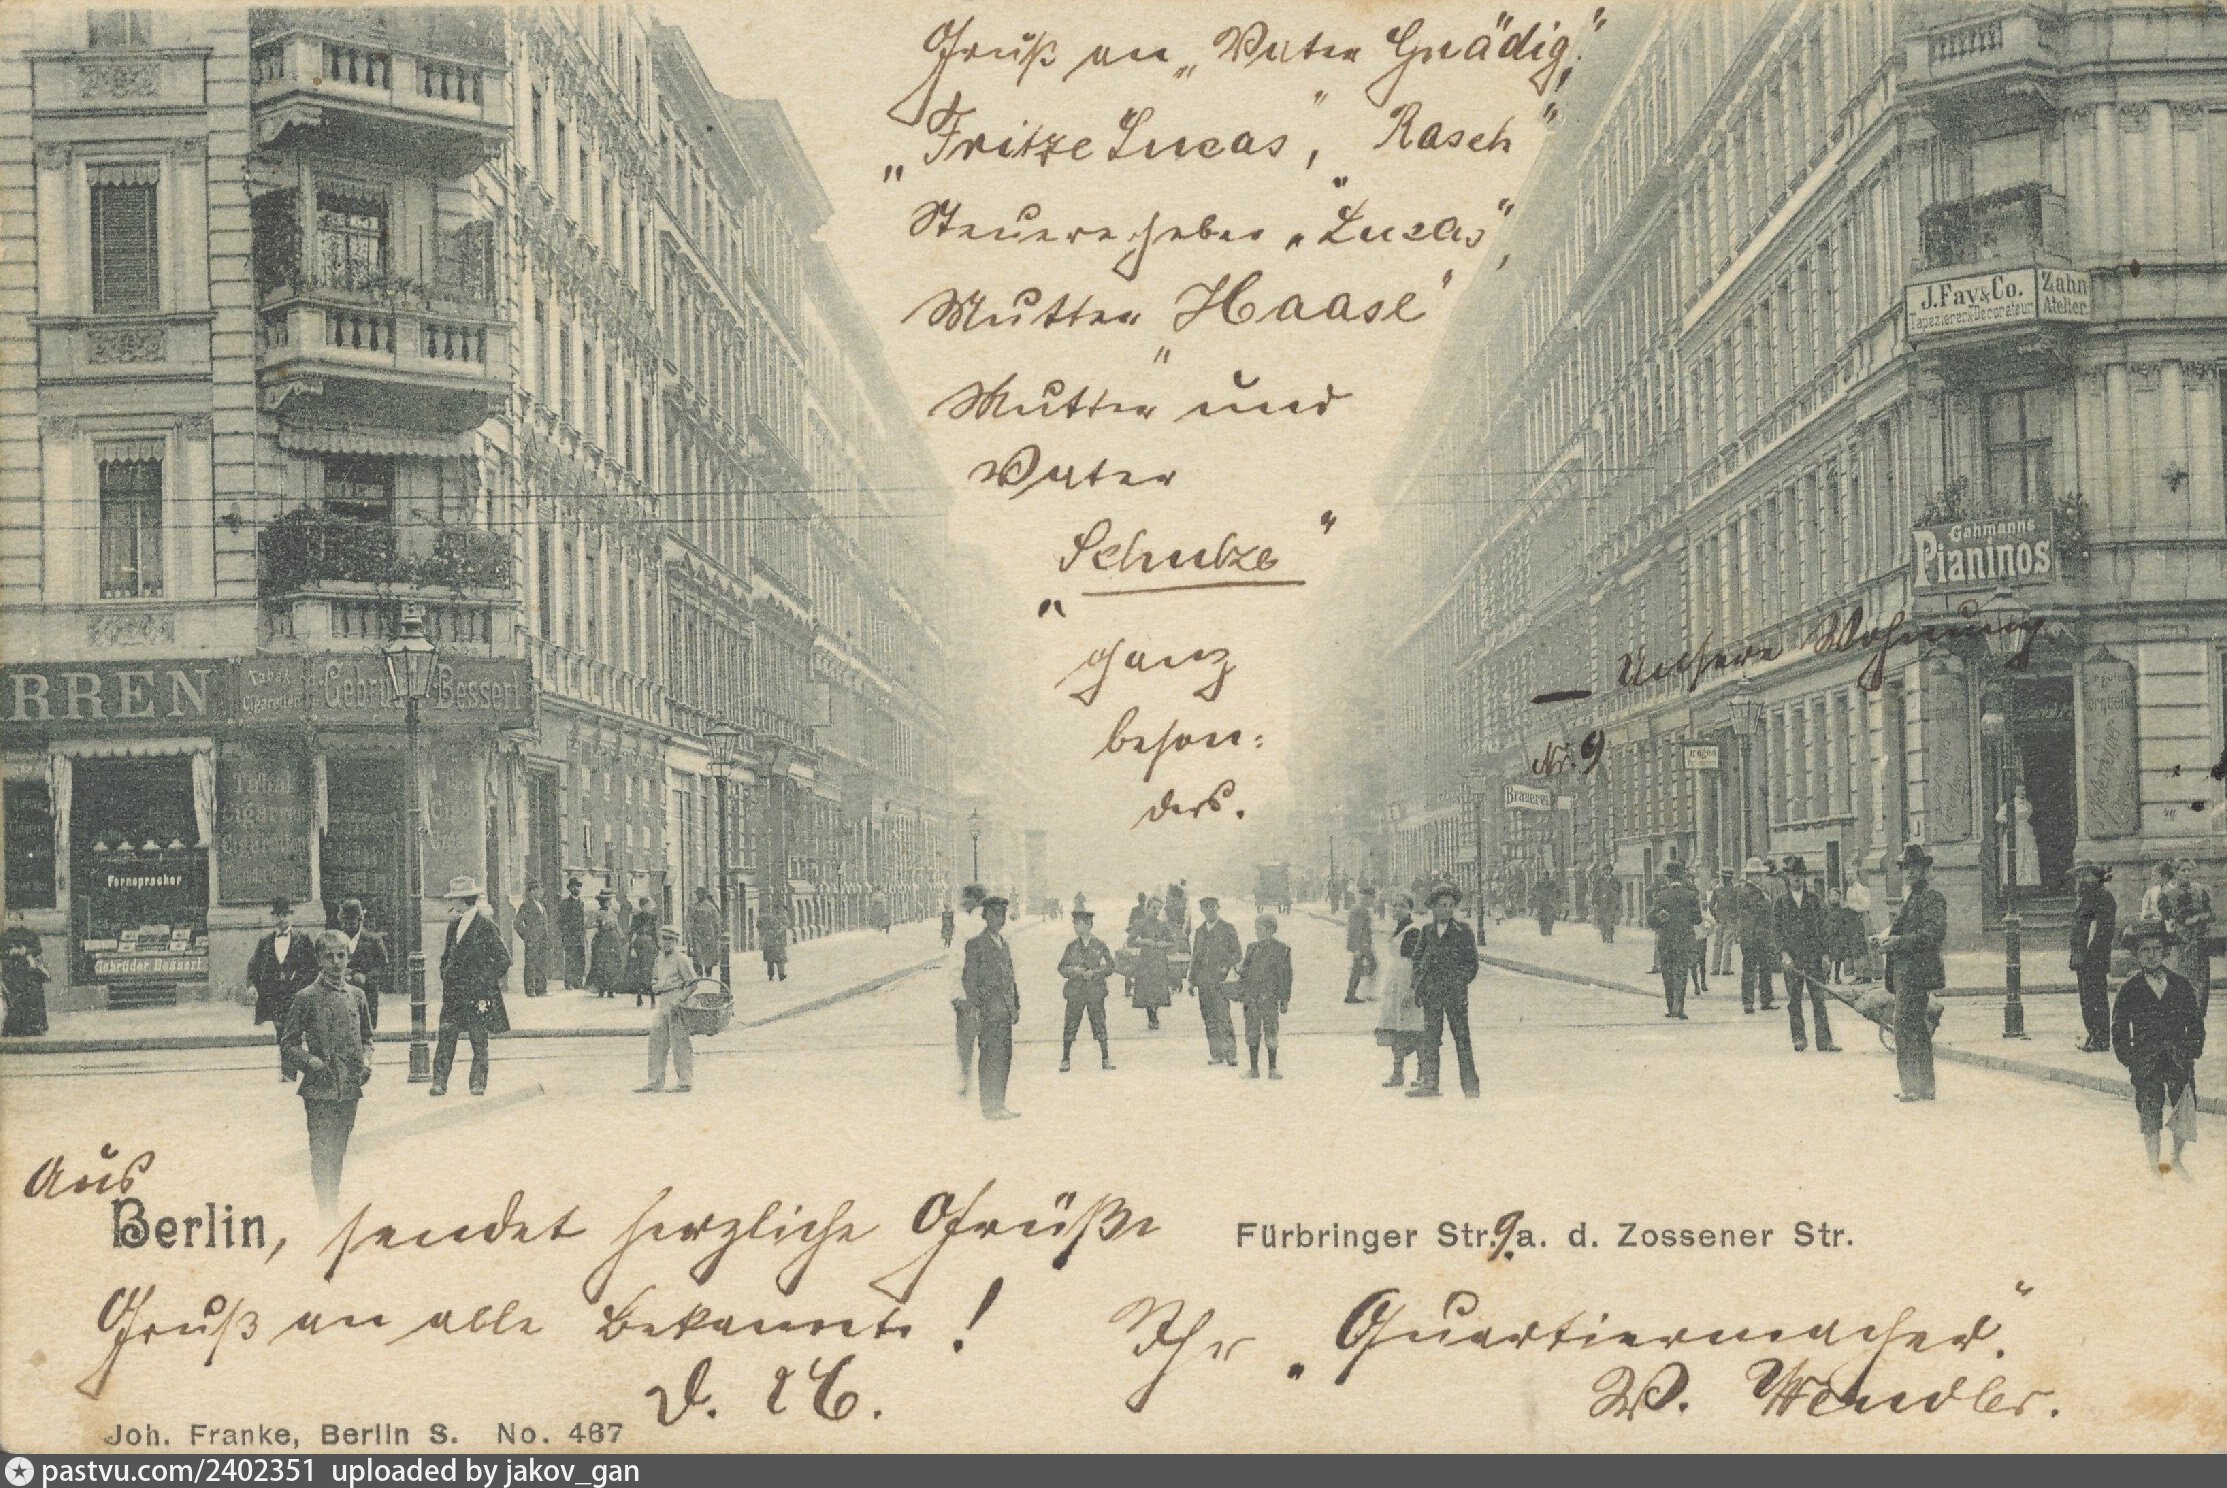 Gruß an „Vater Gnädig“,
„Fritze Lucas“, "Rasch"
Steuererheber „Lucas“,
Mutter "Haase"
Mutter und
Vater
"Schulze"
ganz
beson:
ders.
J. Fay & Co.
Tapezierer & Decorateur
Zahn
Atelier
Gahmanns
Pianinos
— Unsere Wohnung.
Nr. 9
Brauerei
RREN
Tabak
Cigaretten
Gebrüder Bessert
Fernsprecher
Gebrüder Bessert
Aus
Berlin, sendet herzliche Grüße
Fürbringer Str. 9. a. d. Zossener Str.
Gruß an alle Bekannte!
Ihr „Quartiermacher“.
D. 26.
W. Wendler.
Joh. Franke, Berlin S. No. 467
pastvu.com/2402351 uploaded by jakov_gan